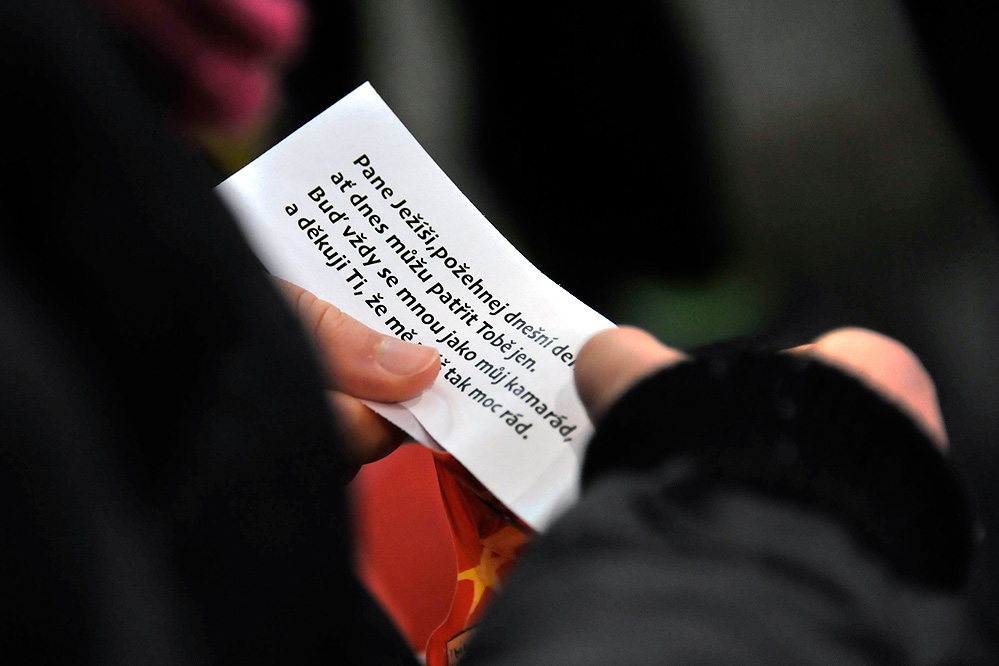 Pane Ježíši,požehnej dnešní
ať dnes můžu patřit Tobě jen.
Buď vždy se mnou jako můj kamarád,
a děkuji Ti, že mě tak moc rád.